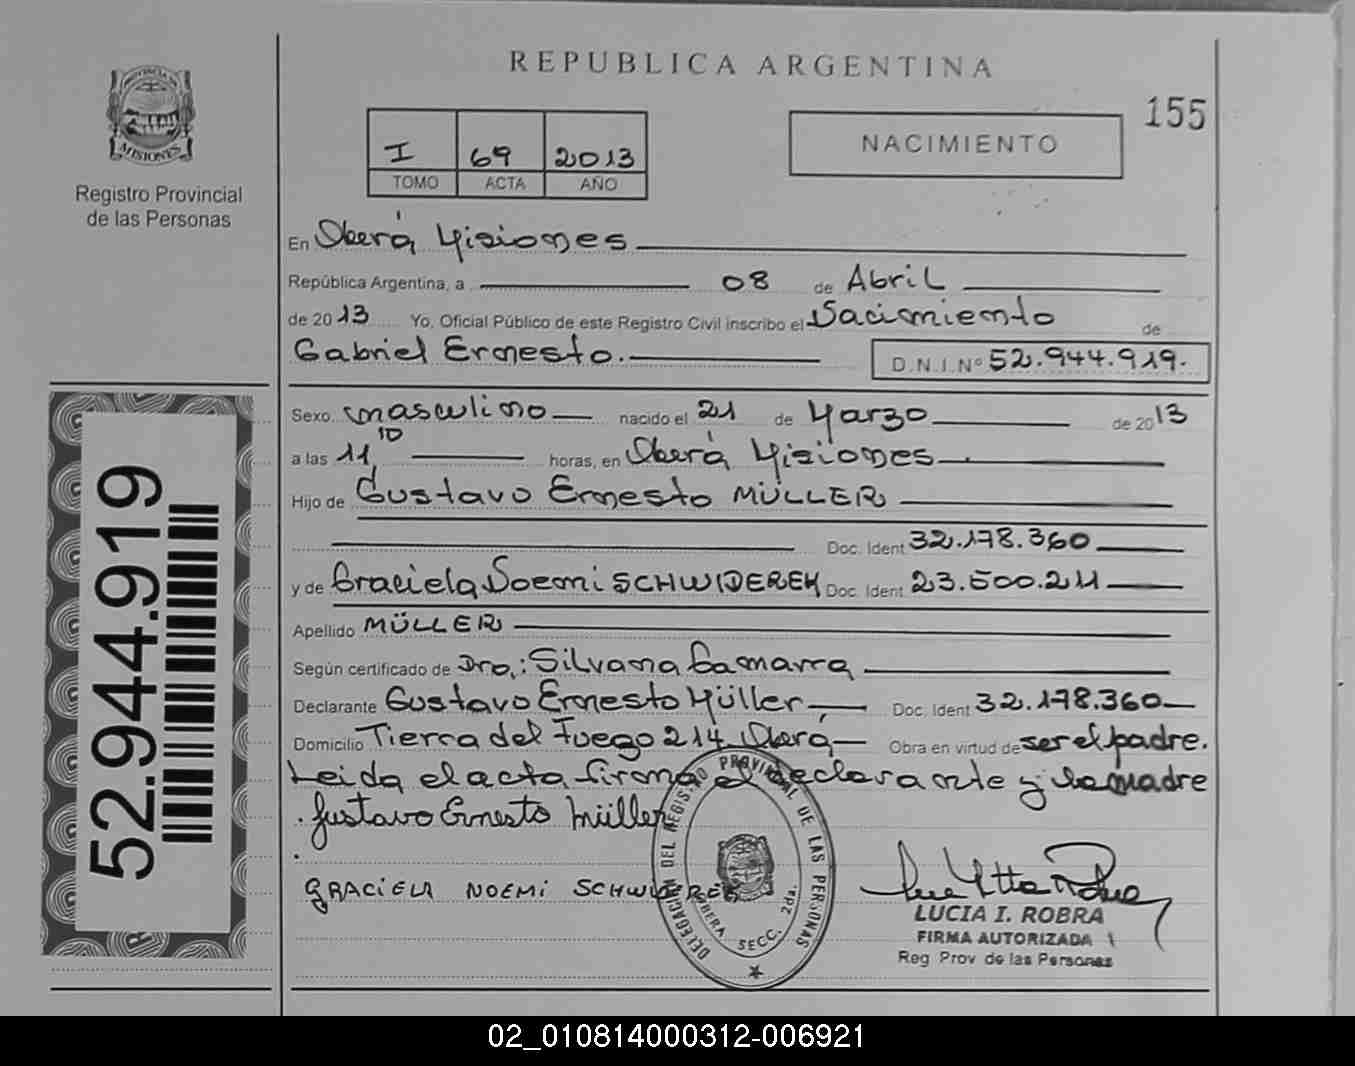 REPUBLICA ARGENTINA
155
PROVINCIA DE
MISIONES
Registro Provincial
de las Personas
I 69 2013
TOMO ACTA AÑO
NACIMIENTO
En Oberá Misiones
República Argentina, a 08 de Abril
de 2013 Yo, Oficial Público de este Registro Civil inscribo el Nacimiento de
Gabriel Ernesto. D.N.I.Nº 52.944.919.
Sexo masculino nacido el 21 de Marzo de 2013
a las 11 10 horas, en Oberá Misiones
Hijo de Gustavo Ernesto MÜLLER
Doc. Ident 32.178.360
y de Graciela Noemi SCHWIDEREK Doc. Ident 23.500.211
Apellido MÜLLER
Según certificado de Dra.: Silvana Gamarra
Declarante Gustavo Ernesto Müller Doc. Ident 32.178.360
Domicilio Tierra del Fuego 214 Oberá Obra en virtud de ser el padre.
Leida el acta firma el declarante y la madre
Gustavo Ernesto Müller
GRACIELA NOEMI SCHWIDEREK
DELEGACION DEL REGISTRO PROVINCIAL DE LAS PERSONAS
OBERA SECC. 2da.
LUCIA I. ROBRA
FIRMA AUTORIZADA
Reg Prov de las Personas
52.944.919
02_010814000312-006921